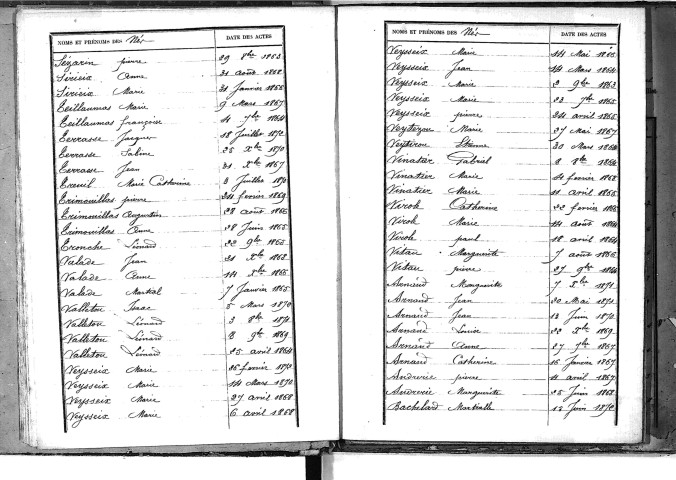 NOMS ET PRÉNOMS DES Nés DATE DES ACTES
Sézarin pierre 29 1863
Sirieix Anne 31 août 1862
Sirieix Marie 31 Janvier 1866
Teillaumas Marie 9 Mars 1867
Teillaumas françoise 4 7bre 1864
Terrasse Jacques 18 Juillet 1872
Terrasse Sabine 25 Xbre 1870
Terrasse Jean 31 Xbre 1867
Treuil Marie Catherine 3 Juillet
Trimouillas pierre 24 fevrier 1869
Trimouillas Augustin 28 août 1866
Trimouillas Anne 28 Juin 1865
Tronche Léonard 22 9bre 1865
Valade Jean 31 Xbre 1868
Valade Anne 14 Xbre 1866
Valade Martial 7 Janvier 1865
Valleton Isaac 5 Mars 1870
Valleton Léonard 3 8bre 1872
Valleton Léonard 8 9bre 1869
Valleton Léonard 25 avril 1864
Veysseix Marie 16 fevrier 1872
Veysseix Marie 14 Mars 1870
Veysseix Marie 27 avril 1868
Veysseix Marie 6 avril 1868
NOMS ET PRÉNOMS DES Nés DATE DES ACTES
Veysseix Marie 14 Mai 1865
Veysseix Jean 14 Mars 1864
Veysseix Marie 3 9bre 1863
Veysseix Marie 23 7bre 1862
Veysseix pierre 24 avril 1865
Veyteron Marie 27 Mai 1867
Veyteron Etienne 30 Mars 1864
Vinatier Gabriel 8 8bre 1864
Vinatier Marie 14 fevrier 1868
Vinatier Marie 11 avril 1865
Virole Catherine 22 fevrier 1866
Virole Marie 14 août 1864
Virole paul 18 avril 1864
Vitau Marguerite 7 août 1866
Vitau pierre 27 9bre 1864
Arnaud Marguerite 7 Xbre 1871
Arnaud Jean 20 Mai 1871
Arnaud Jean 13 Juin 1870
Arnaud Louise 22 1869
Arnaud Anne 27 7bre 1867
Arnaud Catherine 16 Janvier 1867
Andrerie pierre 4 avril 1867
Andrerie Marguerite 25 Juin 1868
Bachelard Martialle 12 Juin 1872